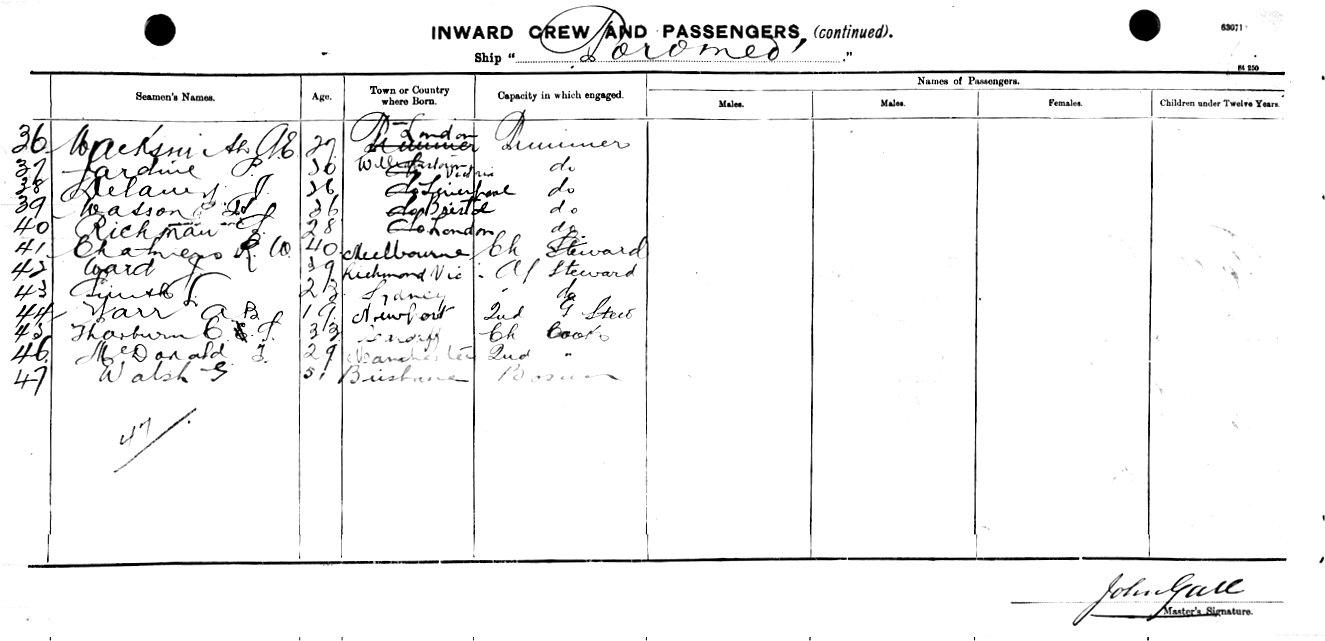 INWARD CREW AND PASSENGERS, (continued).
63071
Ship " "
84 250
Seamen's Names. Age. Town or Country where Born. Capacity in which engaged. Names of Passengers.
Males. Males. Females. Children under Twelve Years.
36 AE London Trimmer Trimmer
37 Jardine P. 30 Victoria do
38 Delaney J. 26 do Liverpool do
39 Watson 36 do Bristol do
40 Richman 28 do London do
41 Chalmers R. W 40 Melbourne Ch Steward
42 Ward J 39 Richmond Vic A/ Steward
43 Smith J 23 Sydney " do
44 A B 19 Newport 2nd G Stew
45 Thorburn C. F. 33 Cardiff Ch Cook
46 McDonald J. 29 Manchester 2nd "
47 Walsh G 51 Brisbane Bosun
47/
John Gall
Master's Signature.